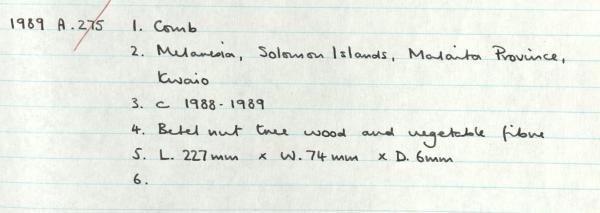 1989 A.275 1. Comb
2. Melanesia, Solomon Islands, Malaita Province,
Kwaio
3. c 1988-1989
4. Betel nut tree wood and vegetable fibre
5. L. 227mm x W. 74mm x D. 6mm
6.